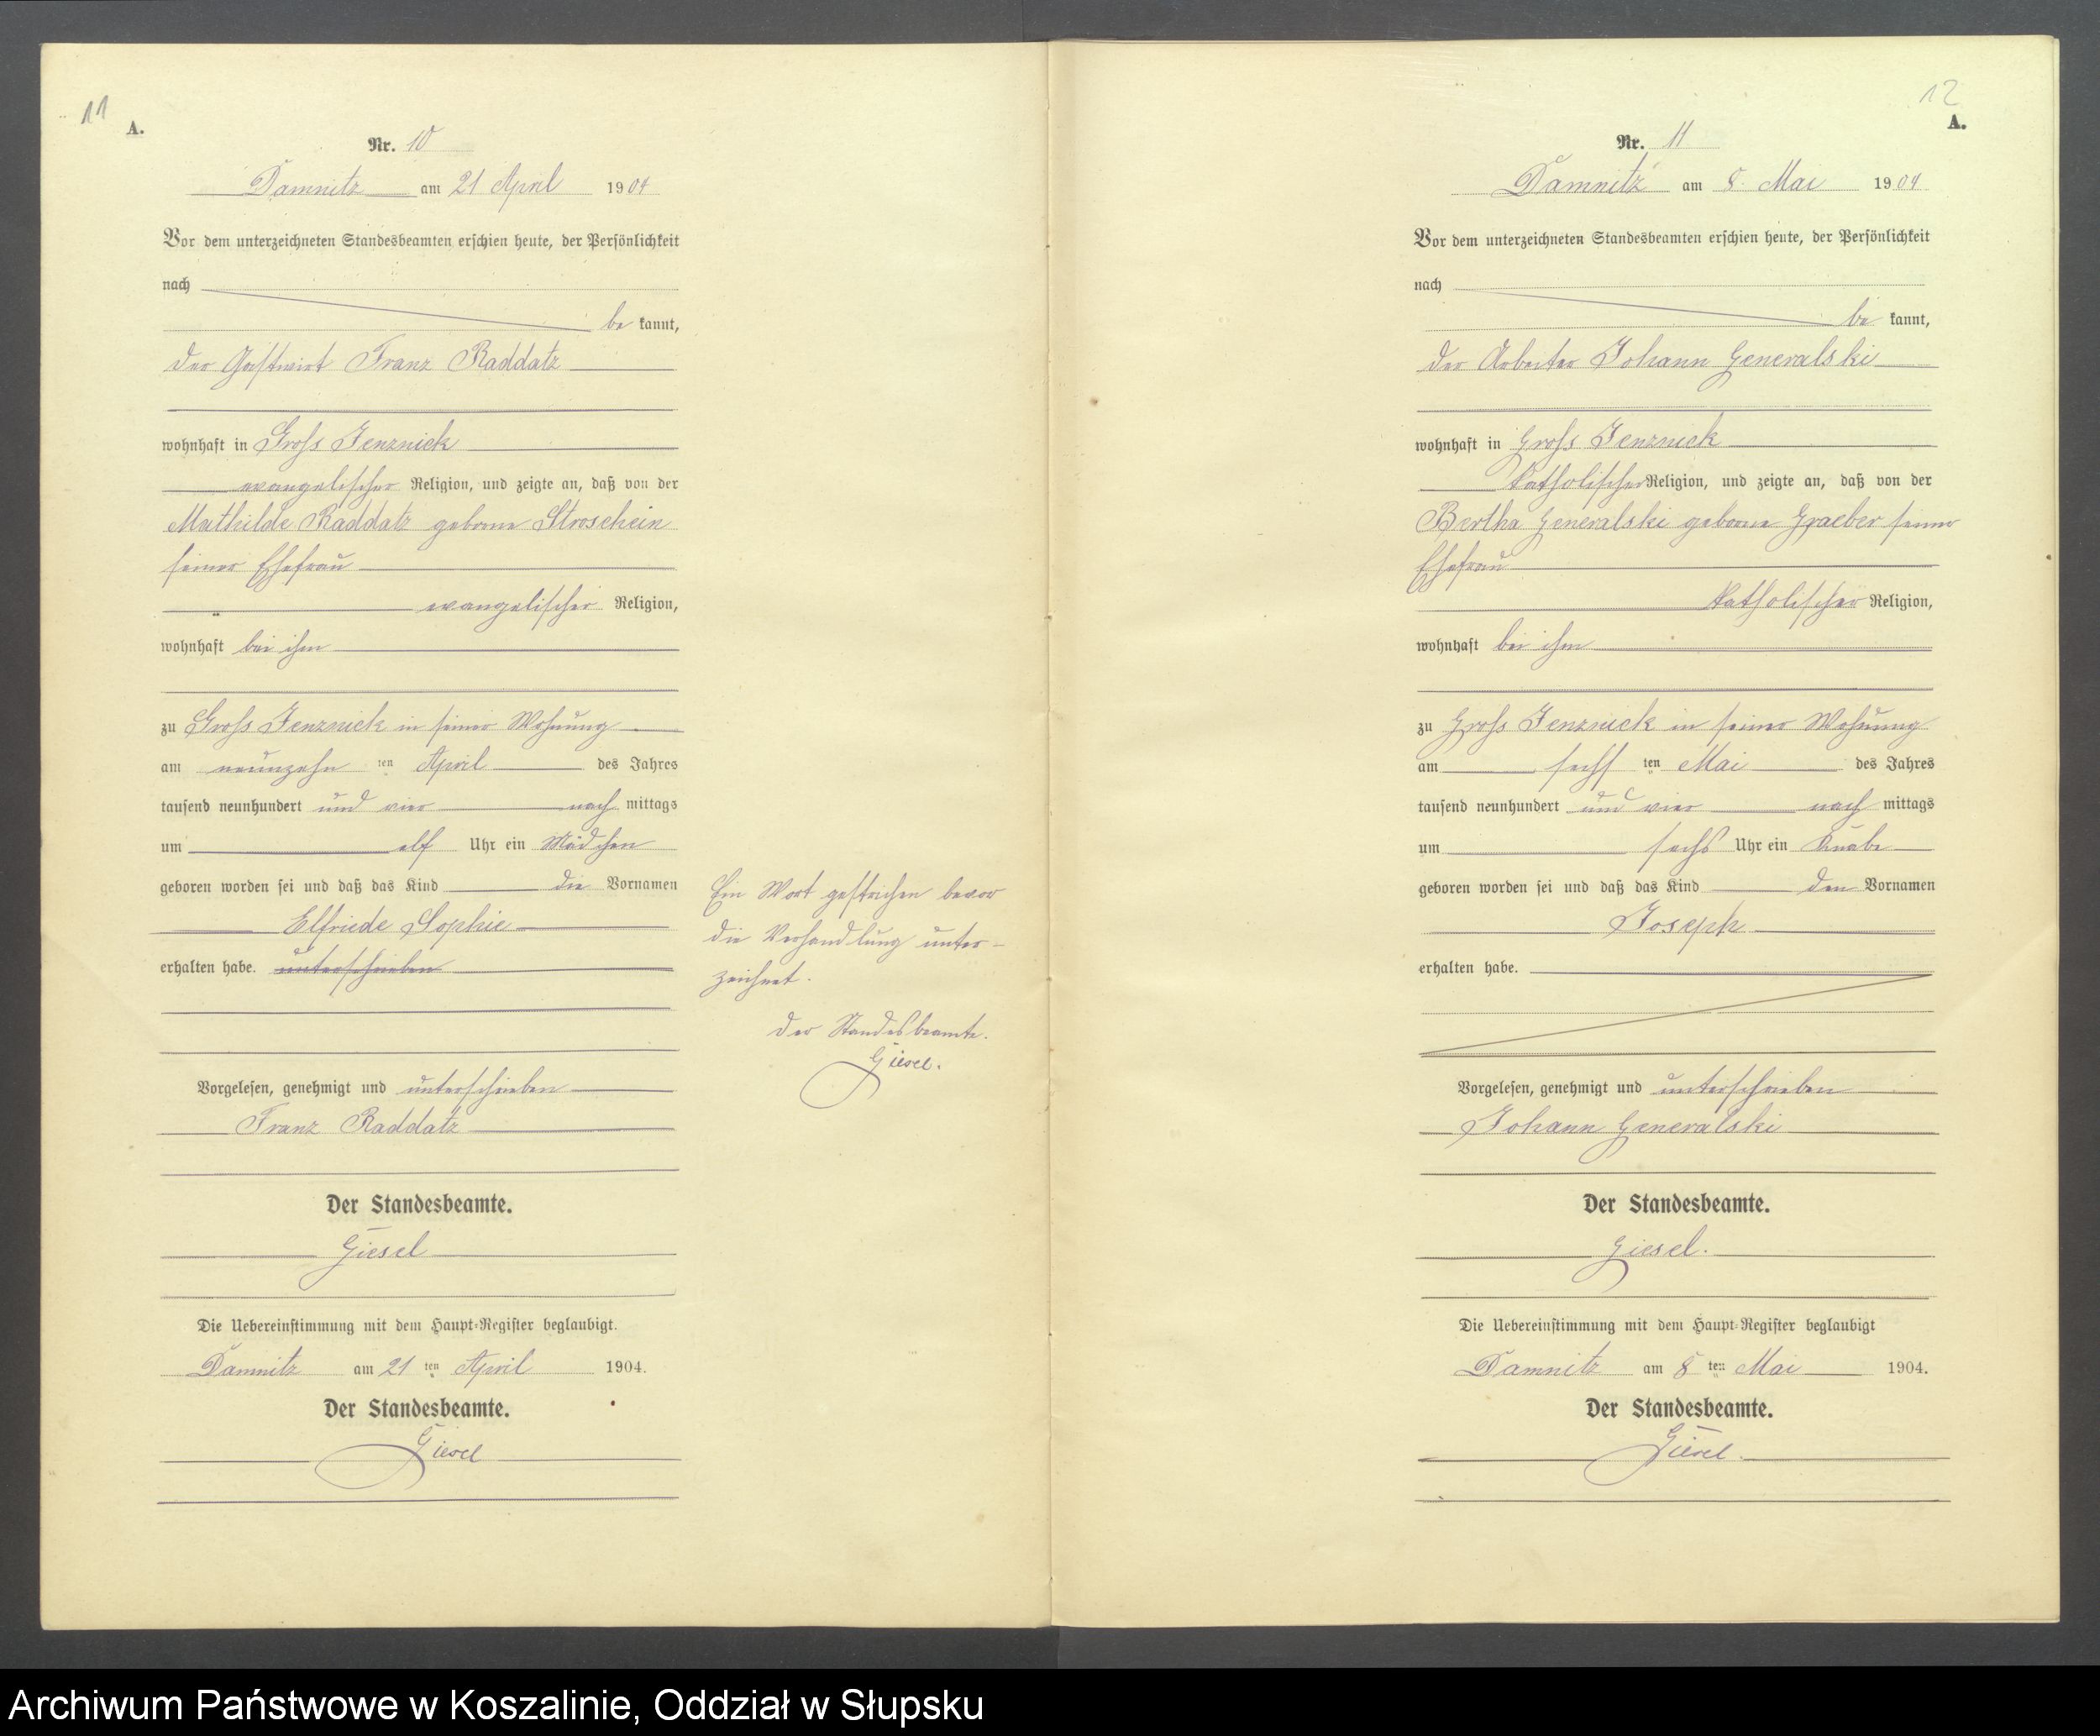 11
A.
Nr. 10
Damnitz am 21 April 1904
Vor dem unterzeichneten Standesbeamten erschien heute, der Persönlichkeit
nach
be kannt,
der Gastwirt Franz Raddatz
wohnhaft in Groß Jenznick
evangelischer Religion, und zeigte an, daß von der
Mathilde Raddatz geborne Stroschein
seiner Ehefrau
evangelischer Religion,
wohnhaft bei ihm
zu Groß Jenznick in seiner Wohnung
am neunzehn ten April des Jahres
tausend neunhundert und vier nach mittags
um elf Uhr ein Mädchen
geboren worden sei und daß das Kind die Vornamen
Elfriede Sophie
erhalten habe. unterschrieben
Vorgelesen, genehmigt und unterschrieben
Franz Raddatz
Der Standesbeamte.
Giesel
Die Uebereinstimmung mit dem Haupt-Register beglaubigt.
Damnitz am 21 ten April 1904.
Der Standesbeamte.
Giesel
Ein Wort gestrichen bevor
die Verhandlung unter-
zeichnet.
Der Standesbeamte.
Giesel.
12
A.
Nr. 11
Damnitz am 8. Mai 1904
Vor dem unterzeichneten Standesbeamten erschien heute, der Persönlichkeit
nach
be kannt,
der Arbeiter Johann Generalski
wohnhaft in Groß Jenznick
katholischer Religion, und zeigte an, daß von der
Bertha Generalski geborne Graeber seiner
Ehefrau
katholischer Religion,
wohnhaft bei ihm
zu Groß Jenznick in seiner Wohnung
am sechs ten Mai des Jahres
tausend neunhundert und vier nach mittags
um sechs Uhr ein Knabe
geboren worden sei und daß das Kind den Vornamen
Joseph
erhalten habe.
Vorgelesen, genehmigt und unterschrieben
Johann Generalski
Der Standesbeamte.
Giesel.
Die Uebereinstimmung mit dem Haupt-Register beglaubigt
Damnitz am 8 ten Mai 1904.
Der Standesbeamte.
Giesel.
Archiwum Państwowe w Koszalinie, Oddział w Słupsku